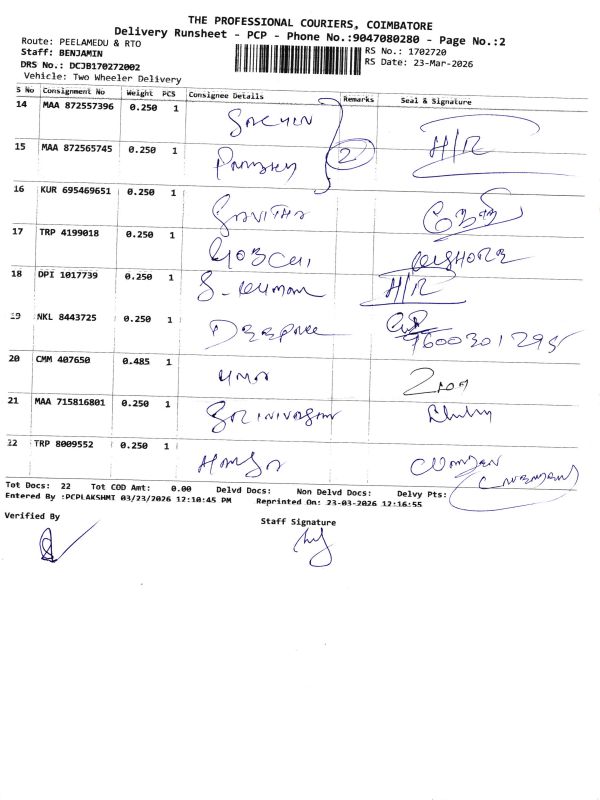 THE PROFESSIONAL COURIERS, COIMBATORE
Delivery Runsheet - PCP - Phone No.:9047080280 - Page No.:2
Route: PEELAMEDU & RTO
RS No.: 1702720
Staff: BENJAMIN
RS Date: 23-Mar-2026
DRS No.: DCJB170272002
Vehicle: Two Wheeler Delivery
S No Consignment No Weight PCS Consignee Details Remarks Seal & Signature
14 MAA 872557396 0.250 1 H/R
15 MAA 872565745 0.250 1 2
16 KUR 695469651 0.250 1 SAVITHA
17 TRP 4199018 0.250 1 KISHORE
18 DPI 1017739 0.250 1 S- KUMAR H/R
19 NKL 8443725 0.250 1 DEEPAK
20 CMM 407650 0.485 1 UMA
21 MAA 715816801 0.250 1 SRINIVASAN
22 TRP 8009552 0.250 1
Tot Docs: 22 Tot COD Amt: 0.00 Delvd Docs: Non Delvd Docs: Delvy Pts:
Entered By :PCPLAKSHMI 03/23/2026 12:10:45 PM Reprinted On: 23-03-2026 12:16:55
Verified By
Staff Signature